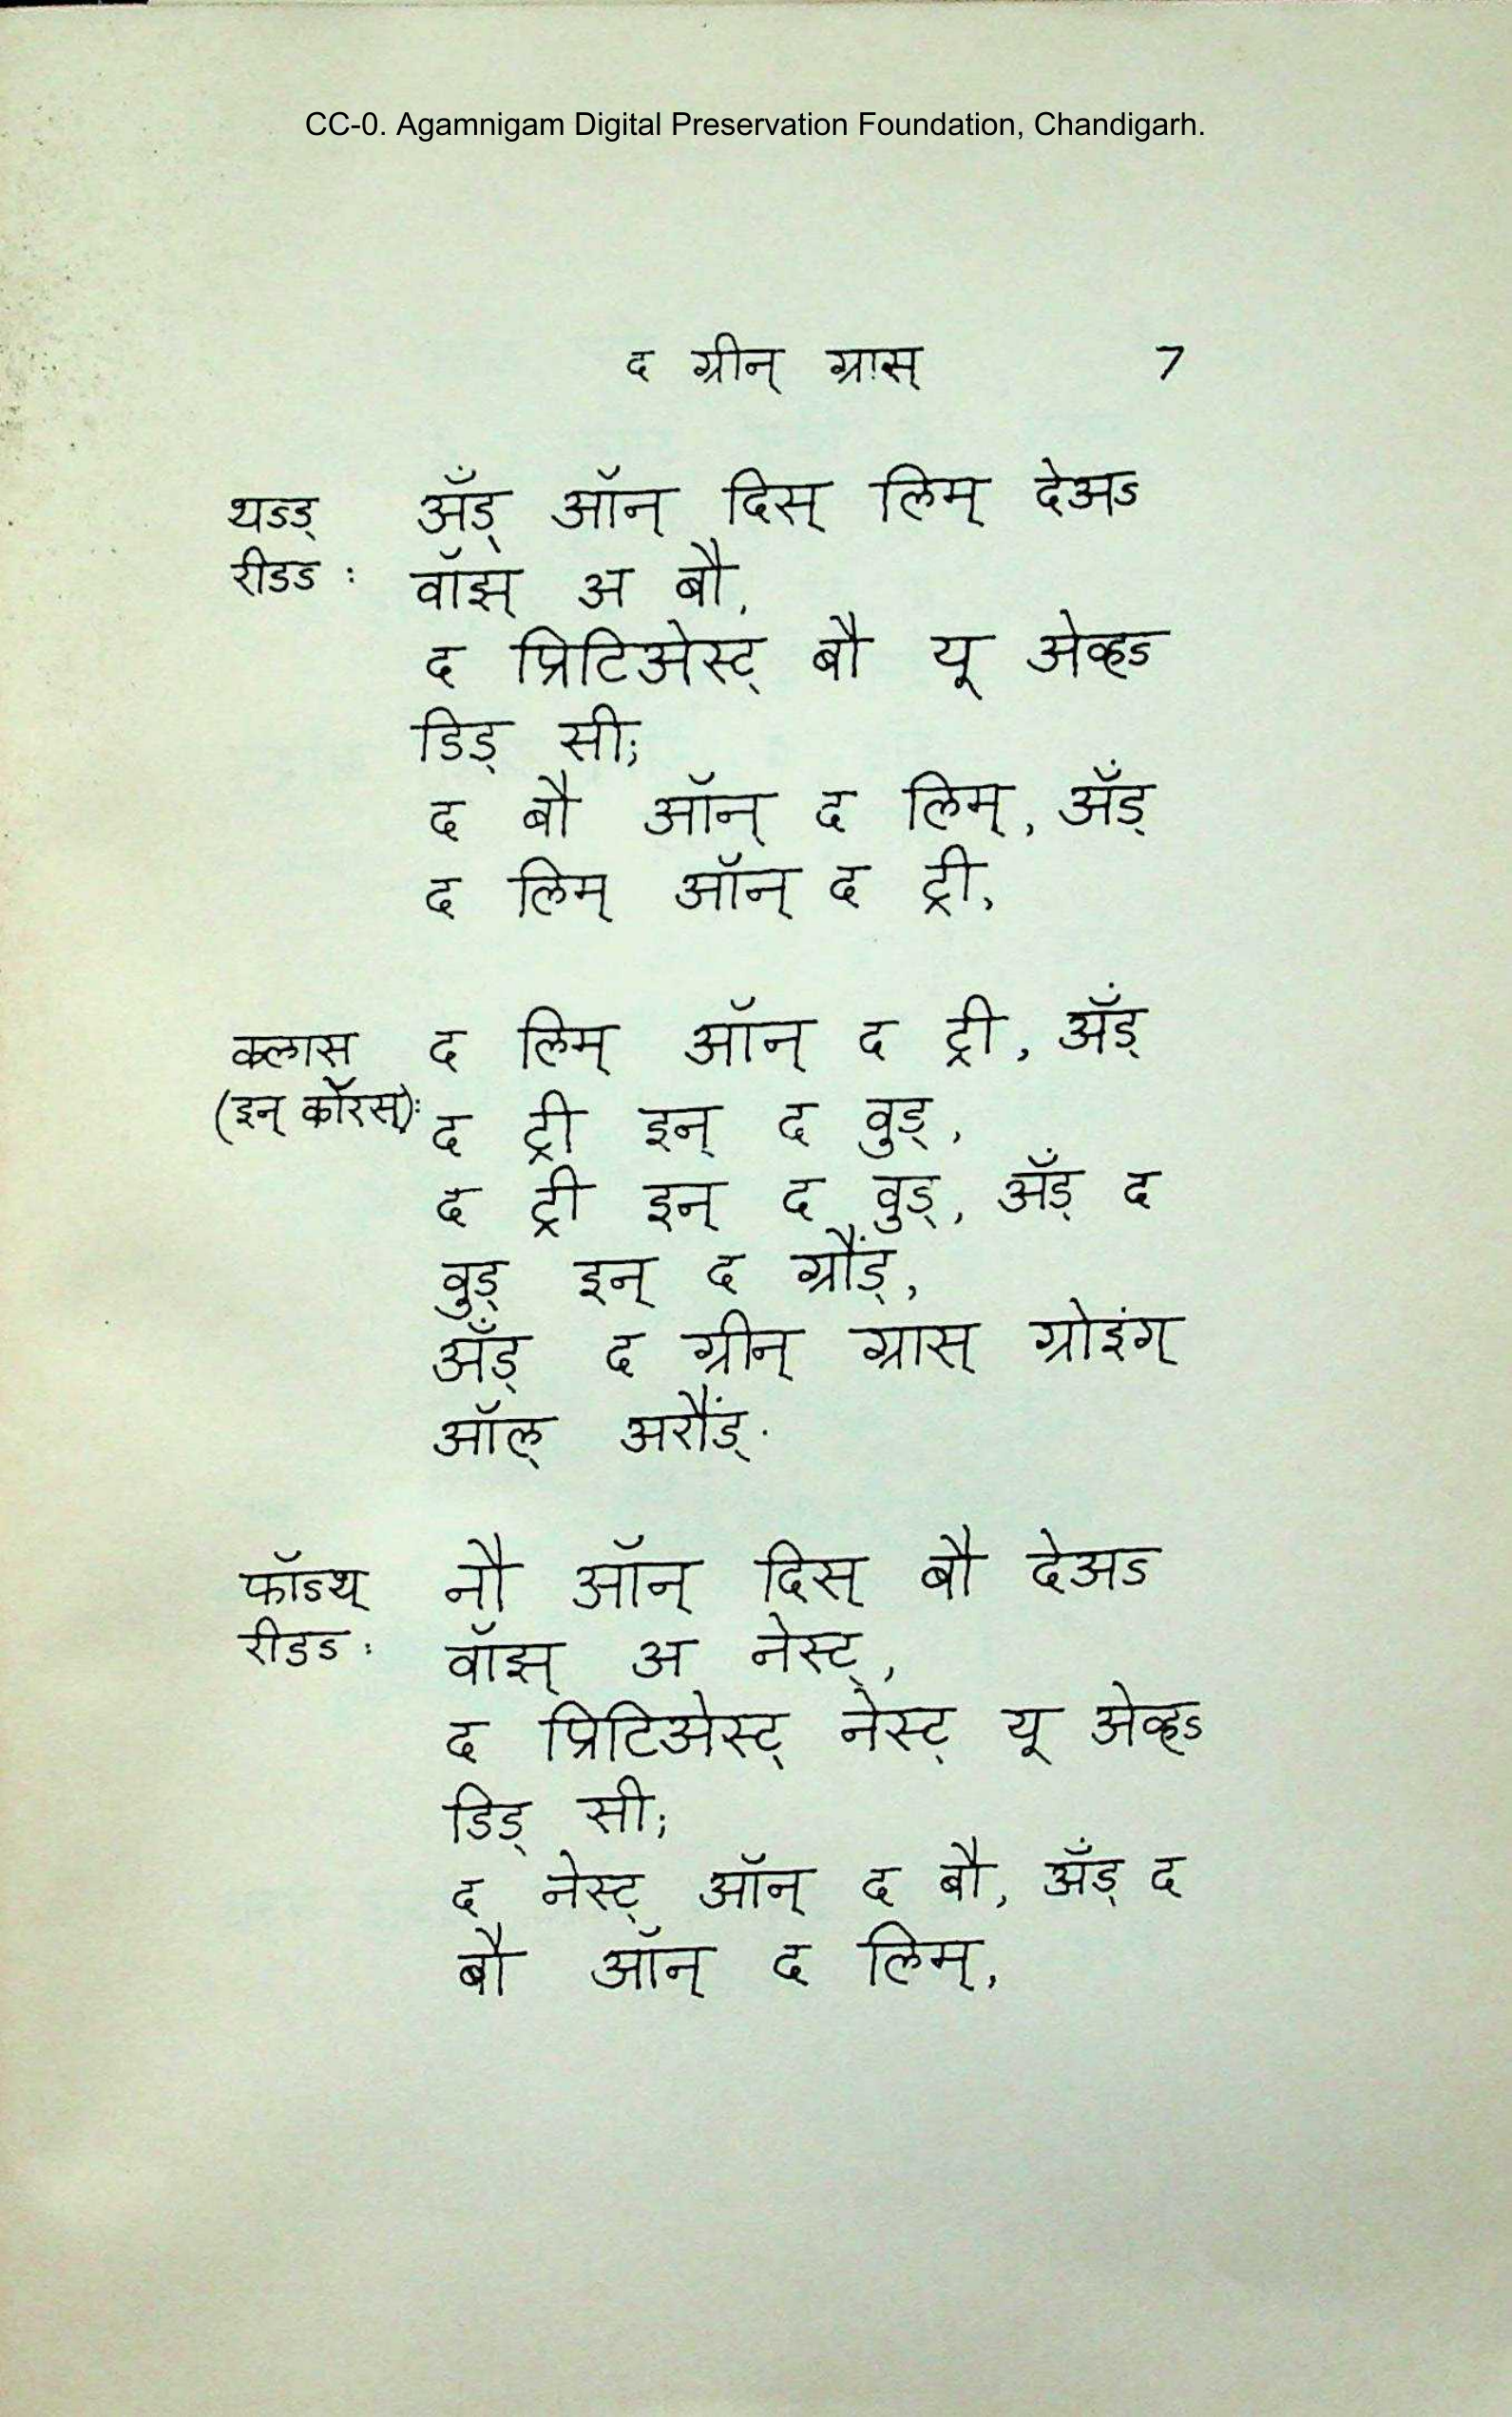 CC-0. Agamnigam Digital Preservation Foundation, Chandigarh.
द ग्रीन् ग्रास् 7
थऽड् अँड् ऑन् दिस् लिम् देअऽ
रीडऽ : वॉझ् अ बौ,
द प्रिटिअेस्ट् बौ यू अेव्हऽ
डिड् सी;
द बौ ऑन् द लिम्, अँड्
द लिम् ऑन् द ट्री,
क्लास द लिम् ऑन् द ट्री, अँड्
(इन् कॉरस्): द ट्री इन् द वुड्,
द ट्री इन् द वुड्, अँड् द
वुड् इन् द ग्रौंड्,
अँड् द ग्रीन् ग्रास् ग्रोइंग्
ऑल् अरौंड्.
फॉऽथ् नौ ऑन् दिस् बौ देअऽ
रीडऽ : वॉझ् अ नेस्ट्,
द प्रिटिअेस्ट् नेस्ट् यू अेव्हऽ
डिड् सी;
द नेस्ट् ऑन् द बौ, अँड् द
बौ ऑन् द लिम्,